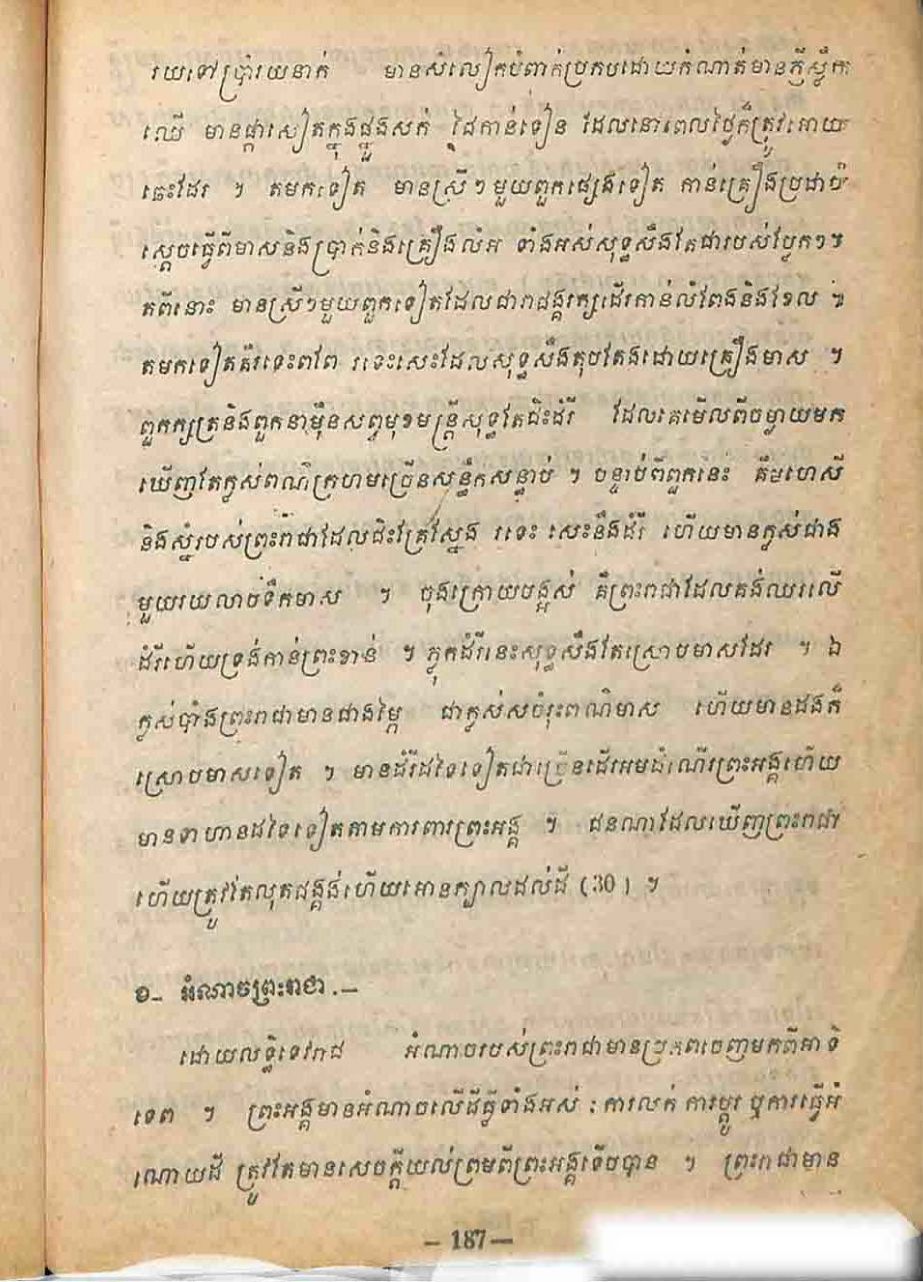 រយទៅប្រាំរយនាក់ មានសំលៀកបំពាក់ប្រកបដោយកំណាត់មានភ្ញីស្លឹក
ឈើ មានផ្កាសៀតក្នុងផ្នួងសក់ ដៃកាន់ទៀន ដែលនោពេលថ្ងៃក៏ត្រូវអោយ
ឆេះដែរ ។ តមកទៀត មានស្រីៗមួយពួកផ្សេងទៀត កាន់គ្រឿងប្រដាប់
ស្តេចធ្វើពីមាសនិងប្រាក់និងគ្រឿងលំអ ទាំងអស់សុទ្ធសឹងតែជារបស់ប្លែកៗ។
តពីនោះ មានស្រីៗមួយពួកទៀតដែលជារាជង្គរក្សដើរកាន់លំពែងនិងខែល ។
តមកទៀតគឺរទេះពពែ រទេះសេះដែលសុទ្ធសឹងតុបតែងដោយគ្រឿងមាស ។
ពួកក្សត្រនិងពួកនាម៉ឺនសព្វមុខមន្ត្រីសុទ្ធតែជិះដំរី ដែលគេមើលពីចម្ងាយមក
ឃើញតែក្លស់ពណ៌ក្រហមច្រើនសន្ធឹកសន្ធាប់ ។ បន្ទាប់ពីពួកនេះ គឺមហេសី
និងស្នំរបស់ព្រះរាជាដែលជិះគ្រែស្នែង រទេះ សេះនឹងដំរី ហើយមានក្លស់ជាង
មួយរយលាបទឹកមាស ។ ចុងក្រោយបង្អស់ គឺព្រះរាជាដែលគង់ឈរលើ
ដំរីហើយទ្រង់កាន់ព្រះខាន់ ។ ភ្លុកដំរីនេះសុទ្ធសឹងតែស្រោបមាសដែរ ។ ឯ
ក្លស់បាំងព្រះរាជាមានជាងម្ភៃ ជាក្លស់សចំរុះពណ៌មាស ហើយមានដងក៏
ស្រោបមាសទៀត ។ មានដំរីដទៃទៀតជាច្រើនដើរអមដំណើរព្រះអង្គហើយ
មានទាហានដទៃទៀតតាមការពារព្រះអង្គ ។ ជនណាដែលឃើញព្រះរាជា
ហើយត្រូវតែលុតជង្គង់ហើយអោនក្បាលដល់ដី (30) ។
ខ_ អំណាចព្រះរាជា ._
ដោយលទ្ធិទេវរាជ អំណាចរបស់ព្រះរាជាមានប្រភពចេញមកពីអាទិ
ទេព ។ ព្រះអង្គមានអំណាចលើដីធ្លីទាំងអស់ : ការលក់ ការប្តូរ ឬការធ្វើអំ
ណោយដី ត្រូវតែមានសេចក្តីយល់ព្រមពីព្រះអង្គទើបបាន ។ ព្រះរាជាមាន
— 187 —